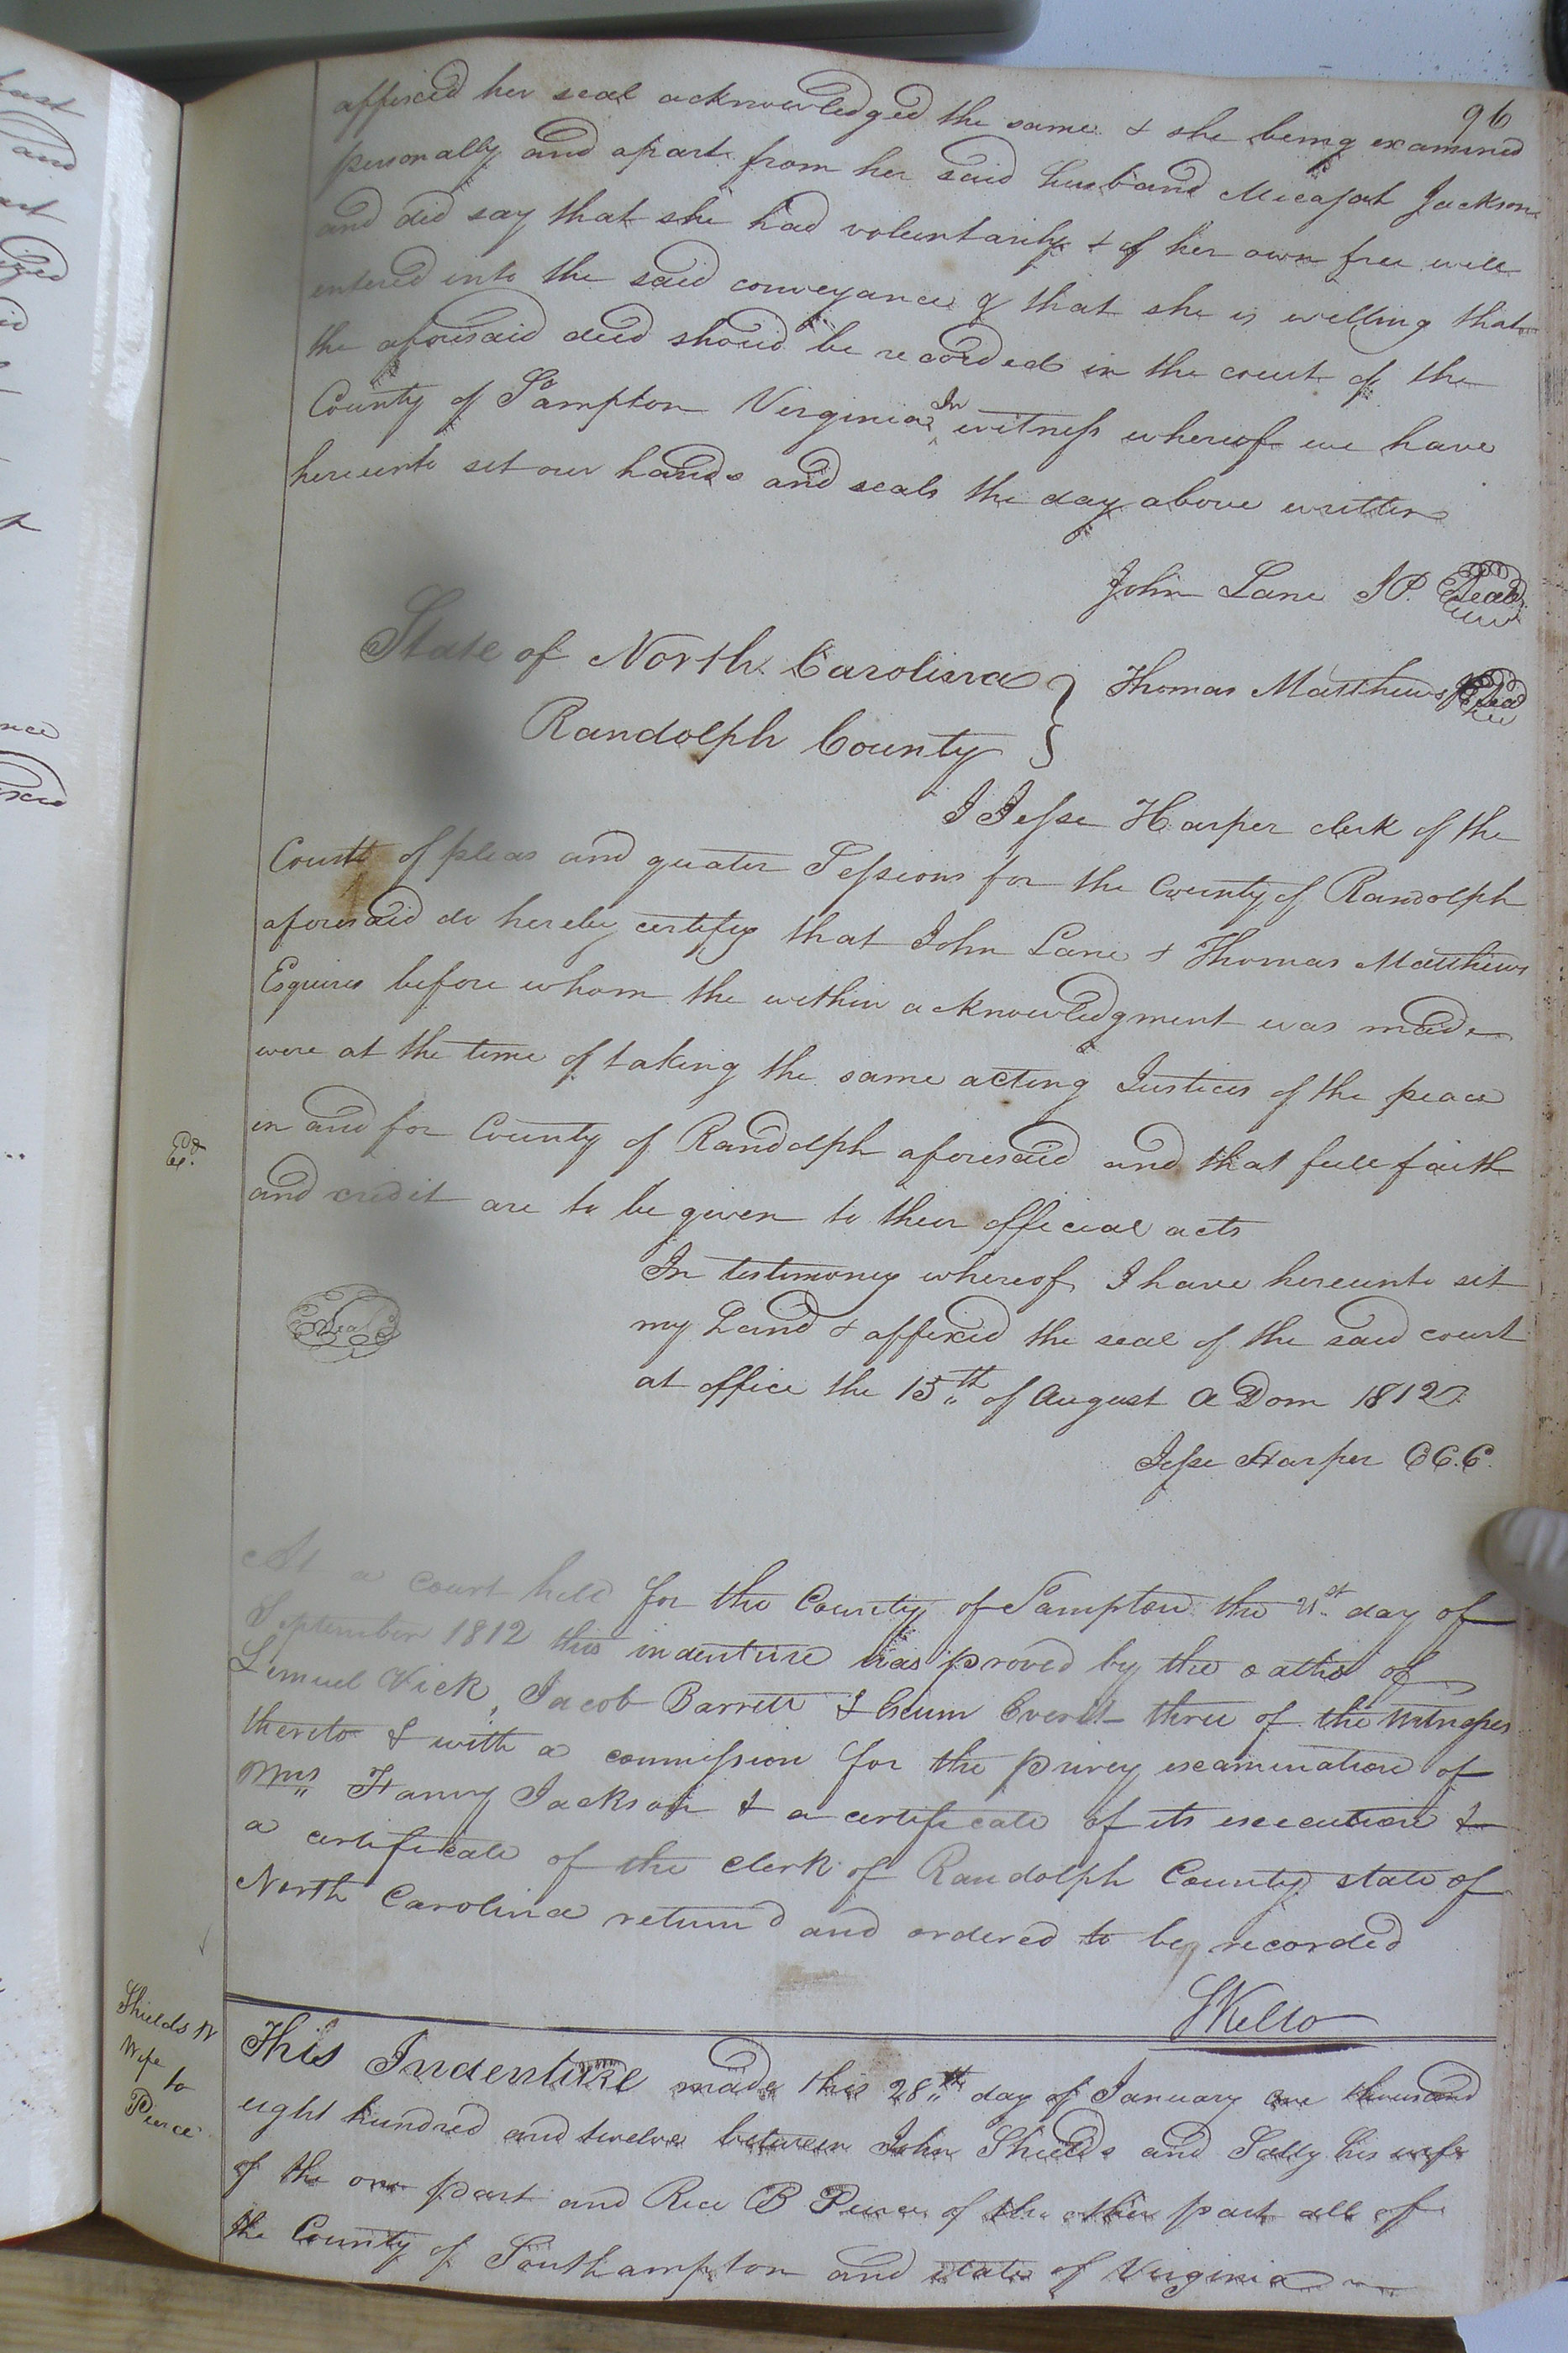 96
affixed her seal acknowledged the same & she being examined
personally and apart from her said husband Micajah Jackson
and did say that she had voluntarily & of her own free will
entered into the said conveyance & that she is willing that
the aforesaid deed should be recorded in the court of the
County of So ampton Virginia In witness whereof we have
hereunto set our hands and seals the day above written
John Lane JP. Seal
State of North Carolina } Thomas Matthews Seal
Randolph County }
I Jesse Harper clerk of the
Court of pleas and quater Sessions for the County of Randolph
aforesaid do hereby certify that John Lane & Thomas Matthews
Esquires before whom the within acknowledgment was made
were at the time of taking the same acting Justices of the peace
in and for County of Randolph aforesaid and that full faith
and credit are to be given to their official acts
In testimony whereof I have hereunto set
my hand & affixed the seal of the said court
Seal
at office the 15th of August A Dom 1812
Jesse Harper C.C.C.
At a court held for the County of Sampton the 21st day of
September 1812 this indenture was proved by the oaths of
Lemuel Vick, Jacob Barrett & Exum Everet three of the witnesses
thereto & with a commission for the privey examination of
Mrs Fanny Jackson & a certificate of its execution &
a certificate of the clerk of Randolph County state of
North Carolina return'd and ordered to be recorded
SKello
Shields &
Wife
to
Pierce
This Indenture made this 28th day of January one thousand
eight hundred and twelve between John Shields and Sally his wife
of the one part and Rice B Pierce of the other part all of
the County of Southampton and state of Virginia